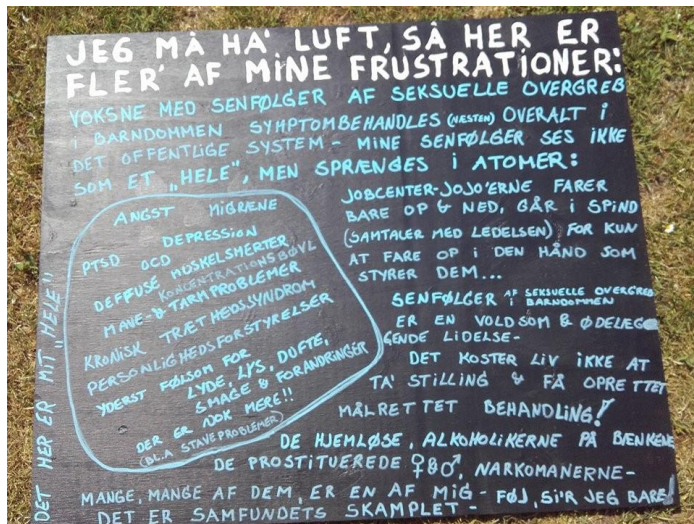 JEG MÅ HA' LUFT, SÅ HER ER
FLER' AF MINE FRUSTRATIONER:
VOKSNE MED SENFØLGER AF SEKSUELLE OVERGREB
I BARNDOMMEN SYMPTOMBEHANDLES (NÆSTEN) OVERALT I
DET OFFENTLIGE SYSTEM - MINE SENFØLGER SES IKKE
SOM ET "HELE", MEN SPRÆNGES I ATOMER:
ANGST MIGRÆNE
DEPRESSION
PTSD OCD
DEFFUSE MUSKELSMERTER
KONCENTRATIONSBØVL
MAVE- & TARMPROBLEMER
KRONISK TRÆTHEDSSYNDROM
PERSONLIGHEDSFORSTYRELSER
YDERST FØLSOM FOR
LYDE, LYS, DUFTE,
SMAGE & FORANDRINGER
DER ER NOK MERE!!
(BL.A STAVEPROBLEMER)
DET HER ER MIT "HELE"
JOBCENTER-JOJO'ERNE FARER
BARE OP & NED, GÅR I SPIND
(SAMTALER MED LEDELSEN) FOR KUN
AT FARE OP I DEN HÅND SOM
STYRER DEM...
SENFØLGER AF SEKSUELLE OVERGREB
I BARNDOMMEN
ER EN VOLDSOM & ØDELÆG
GENDE LIDELSE-
DET KOSTER LIV IKKE AT
TA' STILLING & FÅ OPRETTET
MÅLRETTET BEHANDLING!
DE HJEMLØSE, ALKOHOLIKERNE PÅ BÆNKENE
DE PROSTITUEREDE ♀&♂, NARKOMANERNE-
MANGE, MANGE AF DEM, ER EN AF MIG - FØJ, SI'R JEG BARE!
DET ER SAMFUNDETS SKAMPLET -